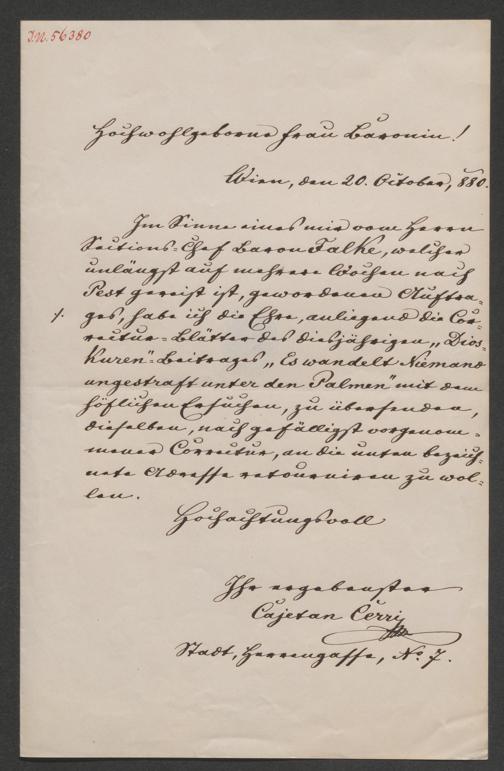 I.N. 56380
Hochwohlgeborne Frau Baronin!
Wien, den 20. October, 880.
Im Sinne eines mir vom Herrn
Sections-Chef Baron Falke, welcher
unlängst auf mehrere Wochen nach
Pest gereist ist, gewordenen Auftra-
./. ges, habe ich die Ehre, anliegend die Cor-
rectur-Blätter des diesjährigen „Dios-
kuren"-Beitrages „Es wandelt Niemand
ungestraft unter den Palmen" mit dem
höflichen Ersuchen, zu übersenden,
dieselben, nach gefälligst vorgenom-
mener Correctur, an die unten bezeich-
nete Adresse retourniren zu wol-
len.
Hochachtungsvoll
Ihr ergebenster
Cajetan Cerri
Stadt, Herrengasse, No. 7.